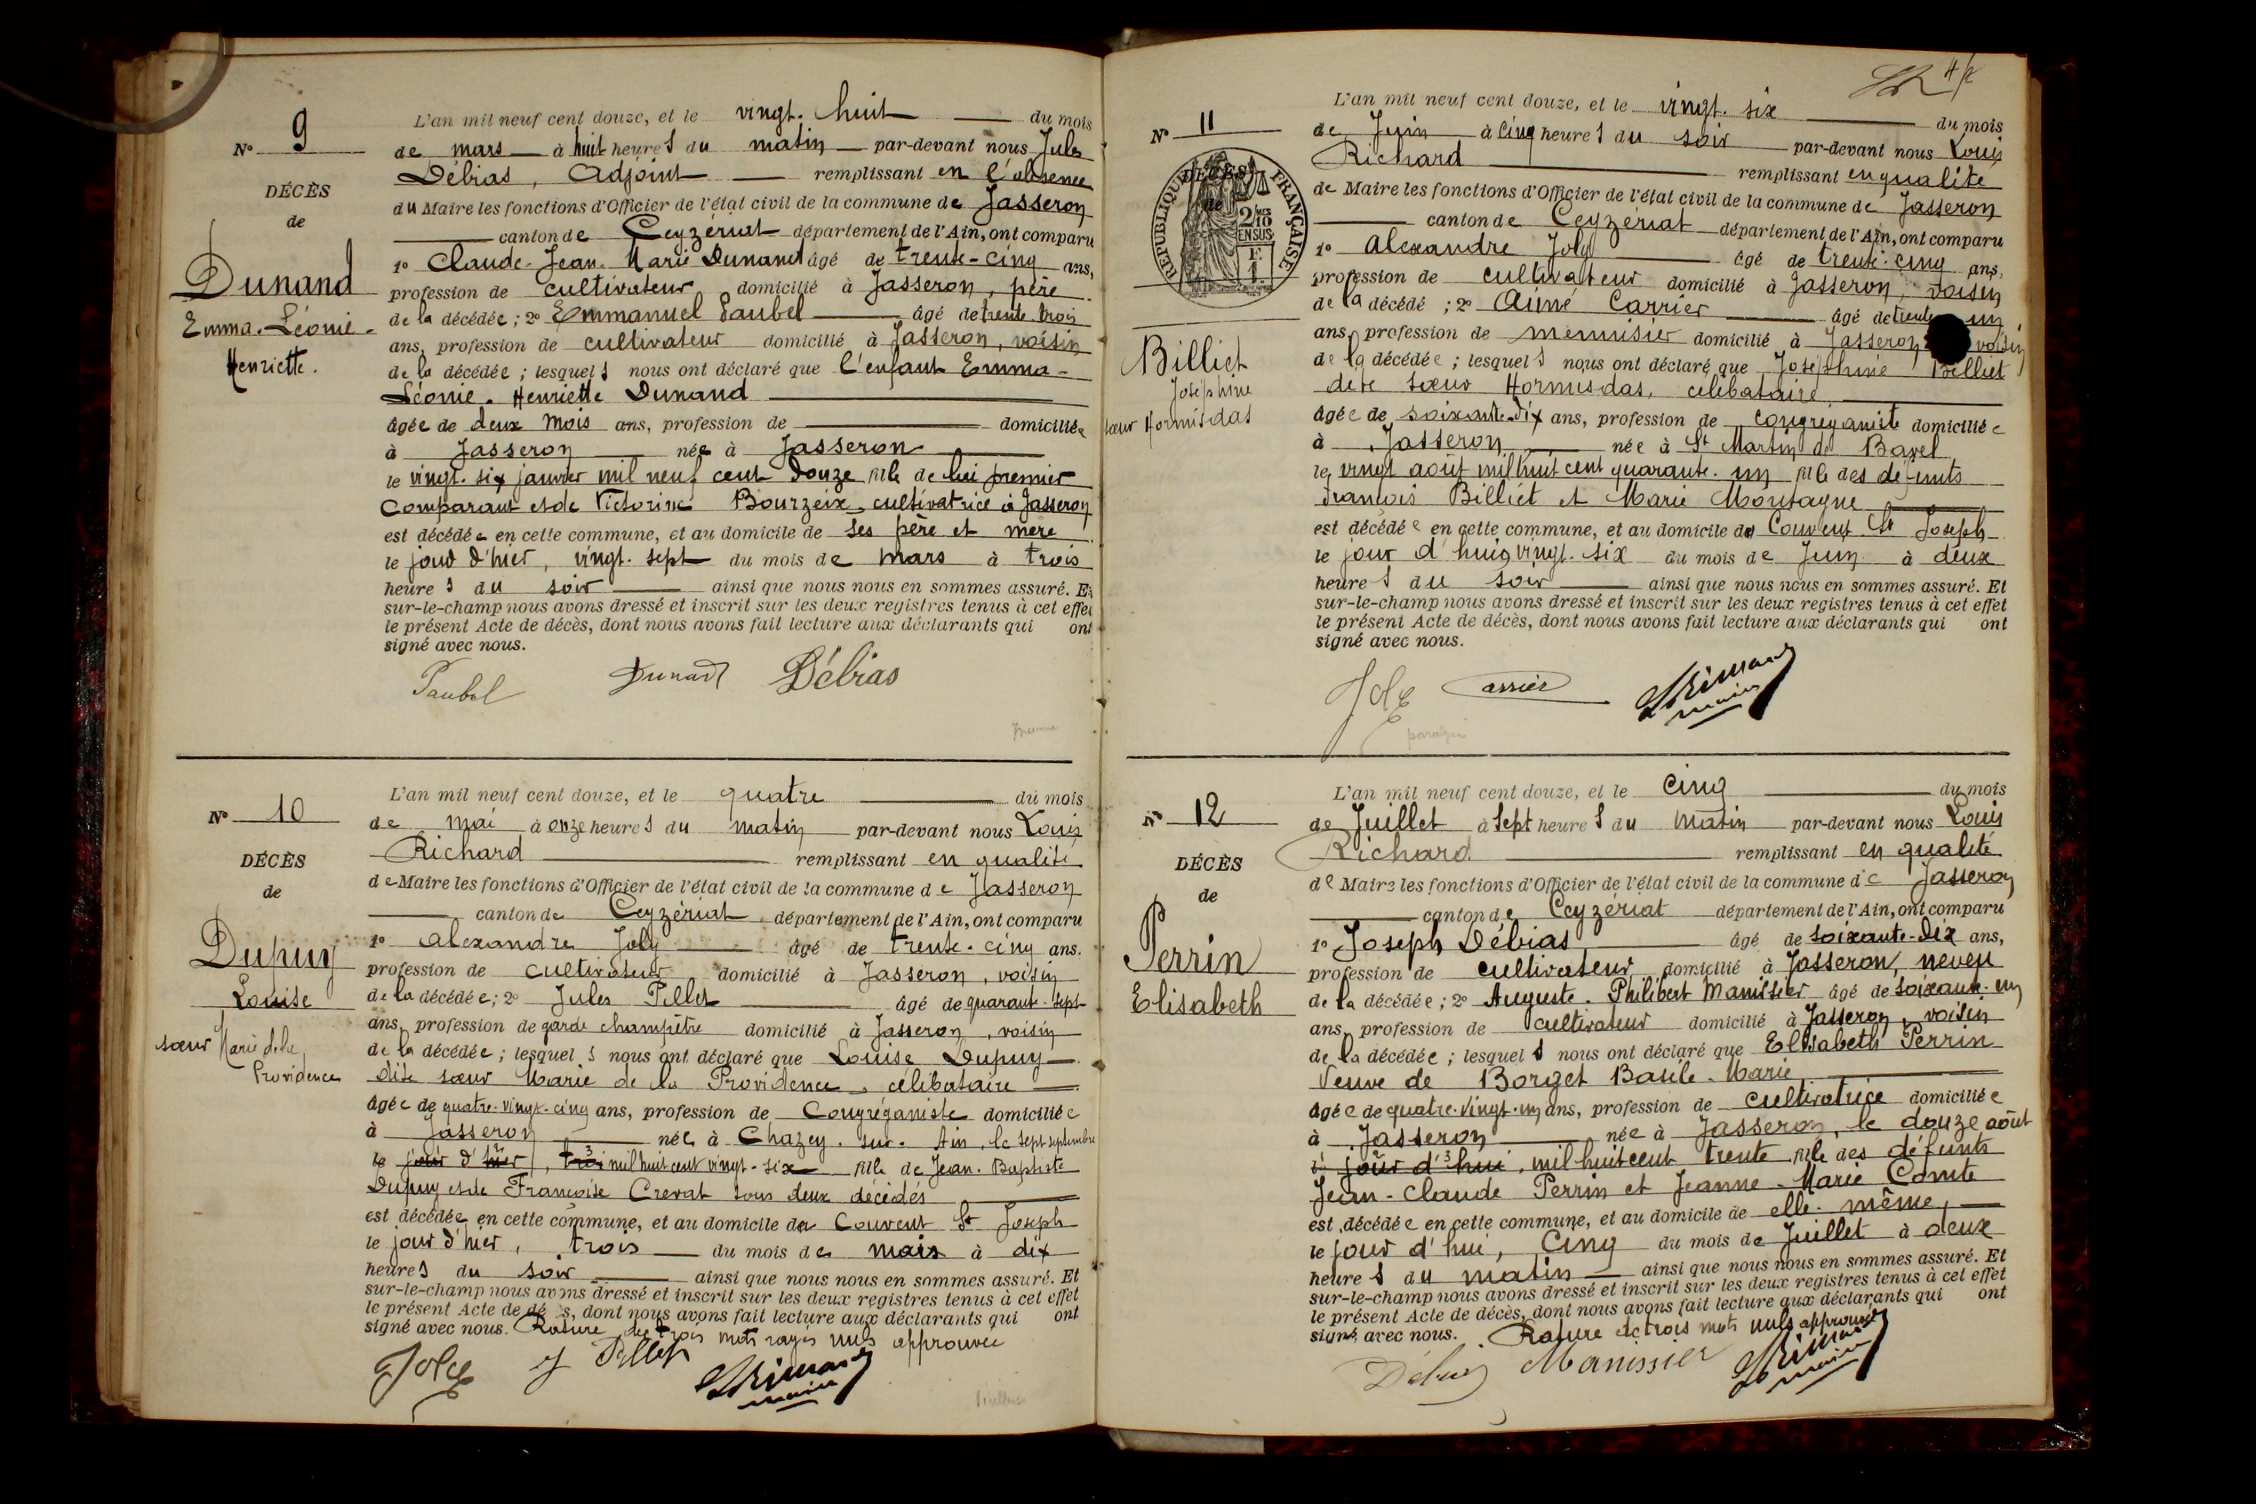 N° 9
DÉCÈS
de
Dunand
Emma-Léonie-
Henriette.
L'an mil neuf cent douze, et le vingt-huit du mois
de mars à huit heures du matin par-devant nous Jules
Débias, Adjoint remplissant en l'absence
du Maire les fonctions d'Officier de l'état civil de la commune de Jasseron
canton de Ceyzériat département de l'Ain, ont comparu
1° Claude-Jean-Marie Dunand âgé de trente-cinq ans,
profession de cultivateur domicilié à Jasseron, père
de la décédée; 2° Emmanuel Paubel âgé de trente-trois
ans, profession de cultivateur domicilié à Jasseron, voisin
de la décédée; lesquels nous ont déclaré que l'enfant Emma-
Léonie-Henriette Dunand
âgée de deux mois ans, profession de domiciliée
à Jasseron née à Jasseron
le vingt-six janvier mil neuf cent douze fille de lui premier
comparant et de Victorine Bourzeix, cultivatrice à Jasseron
est décédée en cette commune, et au domicile de ses père et mère
le jour d'hier, vingt-sept du mois de mars à trois
heures du soir ainsi que nous nous en sommes assuré. Et
sur-le-champ nous avons dressé et inscrit sur les deux registres tenus à cet effet
le présent Acte de décès, dont nous avons fait lecture aux déclarants qui ont
signé avec nous.
Paubel Dunand Débias
N° 10
DÉCÈS
de
Dupuy
Louise
sœur Marie de la
Providence
L'an mil neuf cent douze, et le quatre du mois
de mai à onze heures du matin par-devant nous Louis
Richard remplissant en qualité
de Maire les fonctions d'Officier de l'état civil de la commune de Jasseron
canton de Ceyzériat département de l'Ain, ont comparu
1° Alexandre Joly âgé de trente-cinq ans.
profession de cultivateur domicilié à Jasseron, voisin
de la décédée; 2° Jules Pillet âgé de quarante-sept
ans, profession de garde champêtre domicilié à Jasseron, voisin
de la décédée; lesquels nous ont déclaré que Louise Dupuy
dite sœur Marie de la Providence, célibataire
âgée de quatre-vingt-cinq ans, profession de Congréganiste domiciliée
à Jasseron née à Chazey-sur-Ain, le sept septembre
le jour d'hier, trois mil huit cent vingt-six fille de Jean-Baptiste
Dupuy et de Françoise Crevat tous deux décédés
est décédée en cette commune, et au domicile du Couvent St Joseph
le jour d'hier, trois du mois de mai à dix
heures du soir ainsi que nous nous en sommes assuré. Et
sur-le-champ nous avons dressé et inscrit sur les deux registres tenus à cet effet
le présent Acte de décès, dont nous avons fait lecture aux déclarants qui ont
signé avec nous. Rature de trois mots rayés nuls approuvée
Joly J Pillet maire
N° 11
RÉPUBLIQUE FRANÇAISE
DÉCÈS
de
Billiet
Joséphine
sœur Hormisdas
L'an mil neuf cent douze, et le vingt-six du mois
de Juin à cinq heures du soir par-devant nous Louis
Richard remplissant en qualité
de Maire les fonctions d'Officier de l'état civil de la commune de Jasseron
canton de Ceyzériat département de l'Ain, ont comparu
1° Alexandre Joly âgé de trente-cinq ans,
profession de cultivateur domicilié à Jasseron, voisin
de la décédé; 2° Aimé Carrier âgé de trente un
ans, profession de menuisier domicilié à Jasseron voisin
de la décédée; lesquels nous ont déclaré que Joséphine Billiet
dite sœur Hormisdas, célibataire
âgée de soixante-dix ans, profession de congréganiste domiciliée
à Jasseron née à St Martin de Bavel
le vingt août mil huit cent quarante-un fille des défunts
François Billiet et Marie Montagne
est décédée en cette commune, et au domicile du Couvent St Joseph
le jour d'hui vingt-six du mois de Juin à deux
heures du soir ainsi que nous nous en sommes assuré. Et
sur-le-champ nous avons dressé et inscrit sur les deux registres tenus à cet effet
le présent Acte de décès, dont nous avons fait lecture aux déclarants qui ont
signé avec nous.
Joly Carrier maire
N° 12
DÉCÈS
de
Perrin
Elisabeth
L'an mil neuf cent douze, et le cinq du mois
de Juillet à sept heures du matin par-devant nous Louis
Richard remplissant en qualité
de Maire les fonctions d'Officier de l'état civil de la commune de Jasseron
canton de Ceyzériat département de l'Ain, ont comparu
1° Joseph Débias âgé de soixante-dix ans,
profession de cultivateur domicilié à Jasseron, neveu
de la décédée; 2° Auguste-Philibert Manissier âgé de soixante-un
ans, profession de cultivateur domicilié à Jasseron, voisin
de la décédée; lesquels nous ont déclaré que Elisabeth Perrin
Veuve de Borget Basile-Marie
âgée de quatre-vingt-un ans, profession de cultivatrice domiciliée
à Jasseron née à Jasseron, le douze août
le jour d'hui, mil huit cent trente fille des défunts
Jean-Claude Perrin et Jeanne-Marie Comte
est décédée en cette commune, et au domicile de elle-même,
le jour d'hui, cinq du mois de Juillet à deux
heures du matin ainsi que nous nous en sommes assuré. Et
sur-le-champ nous avons dressé et inscrit sur les deux registres tenus à cet effet
le présent Acte de décès, dont nous avons fait lecture aux déclarants qui ont
signé avec nous. Rature de trois mots nuls approuvée
Débias Manissier maire